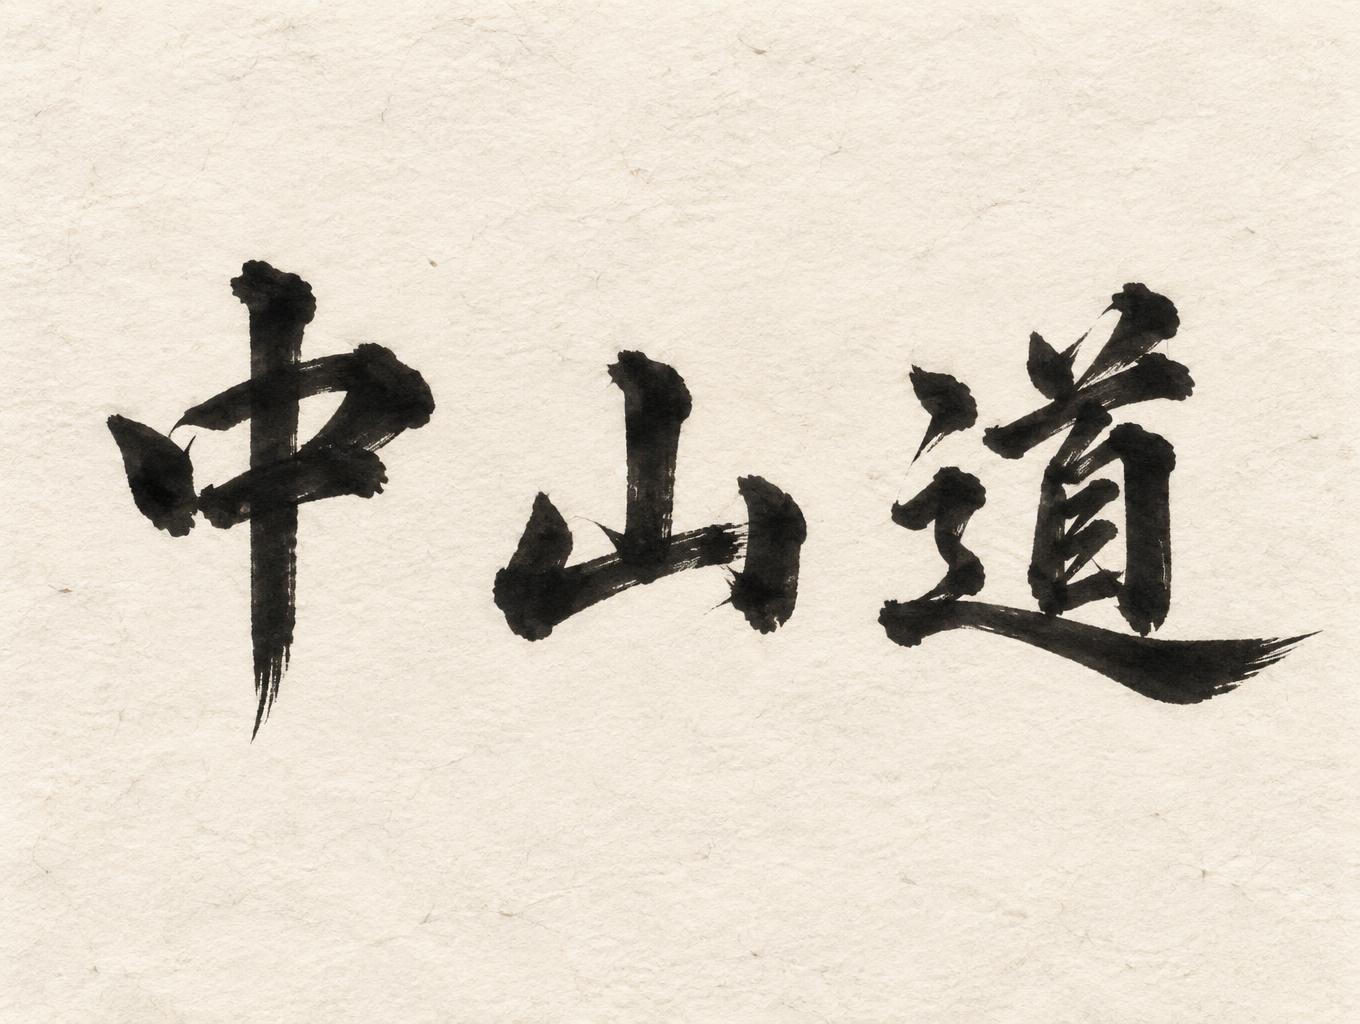 中山道